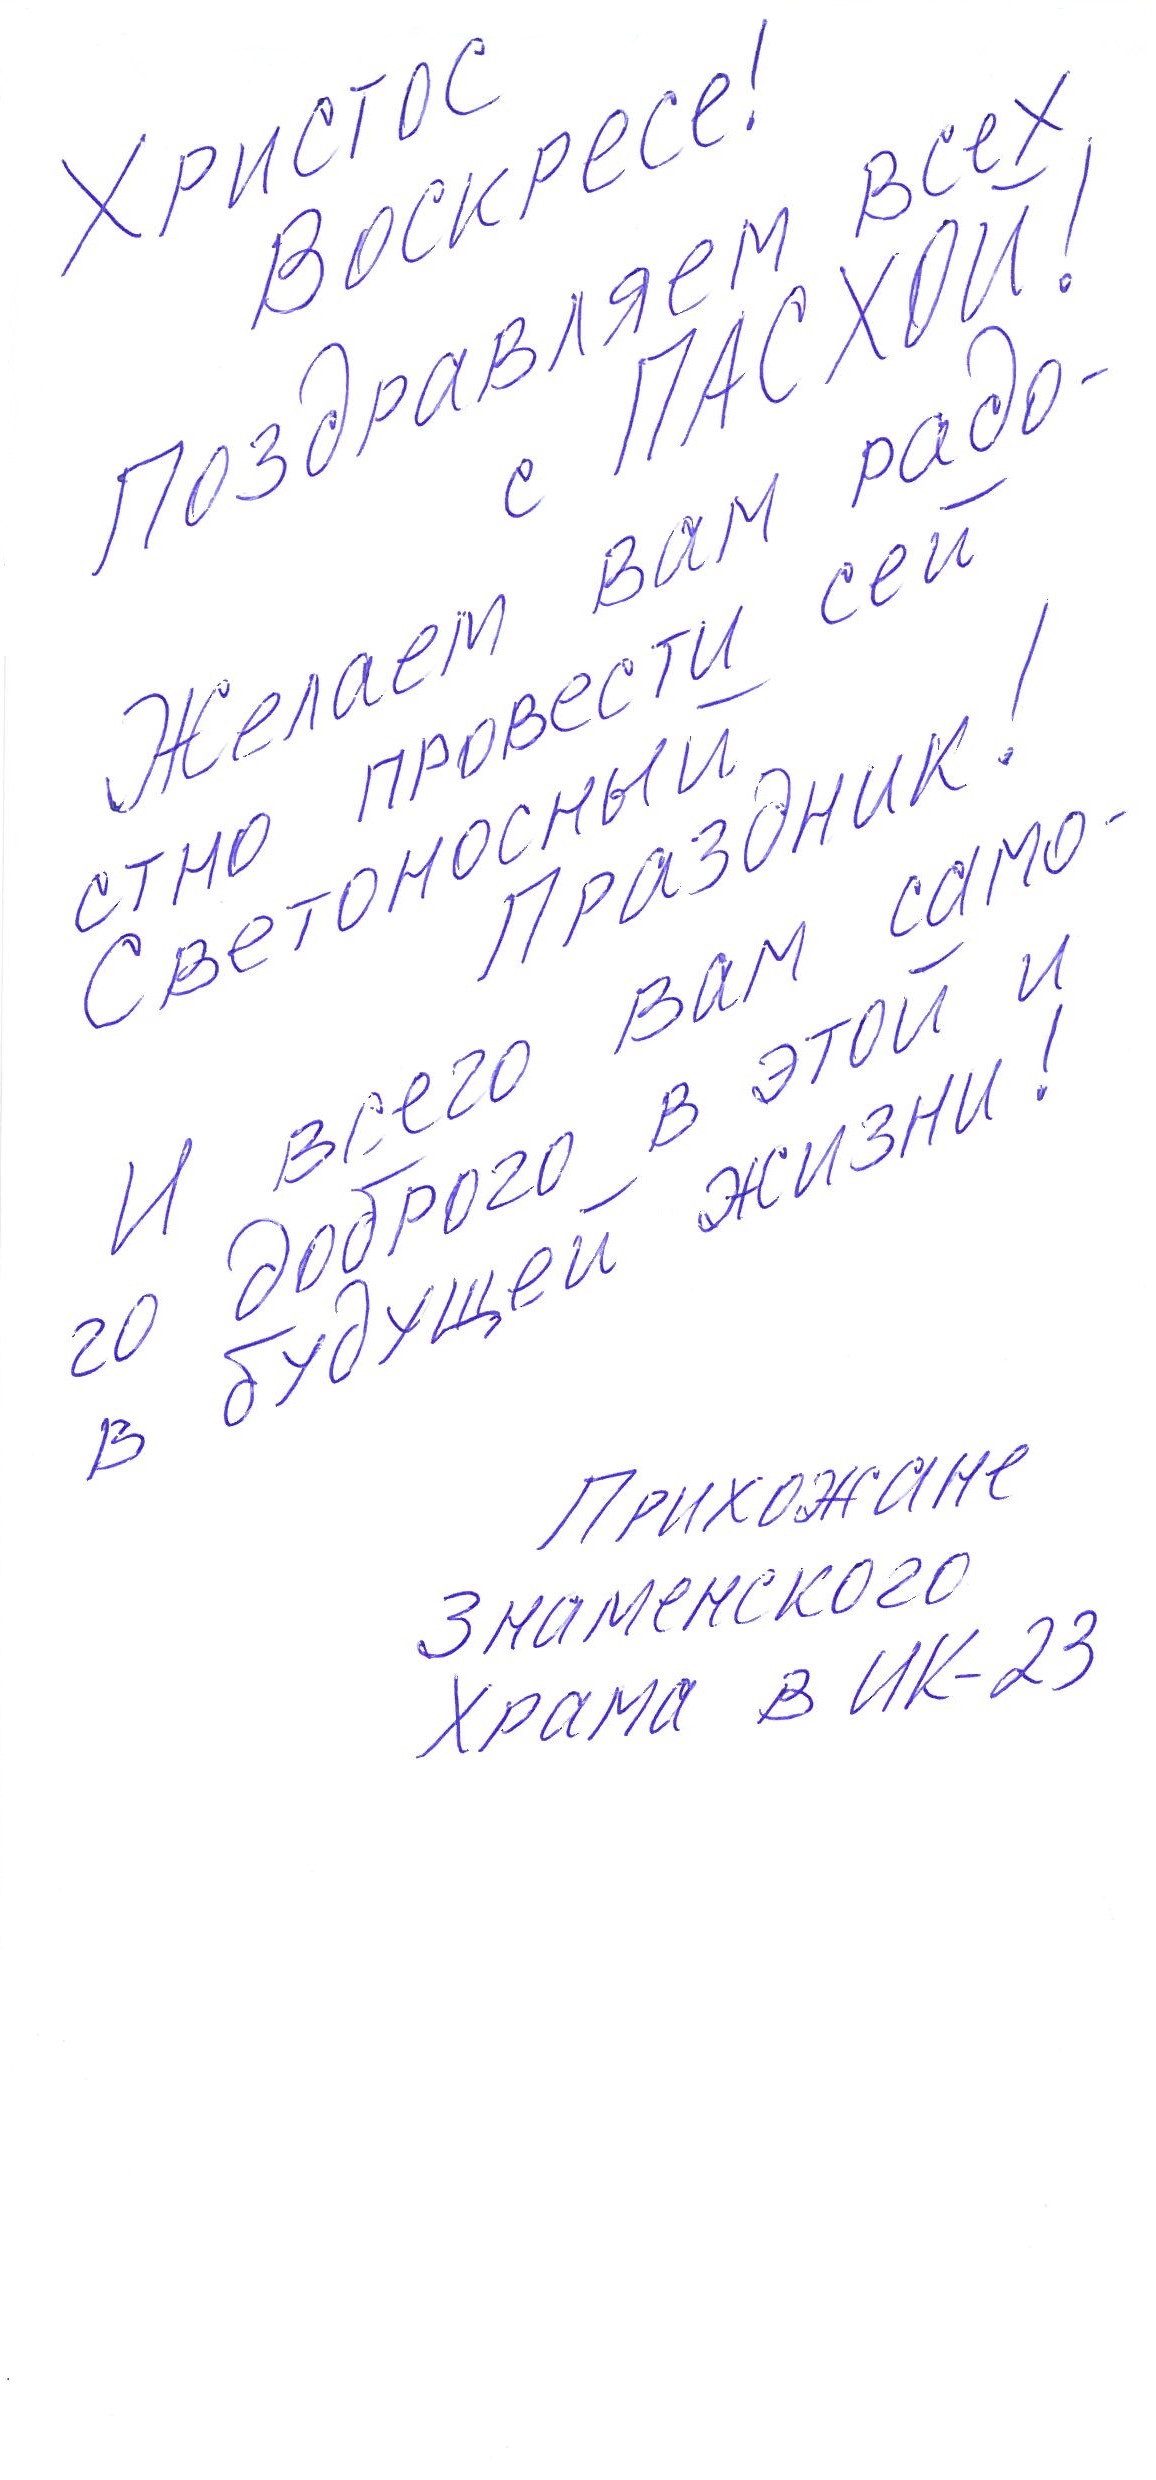 Христос
Воскресе!
Поздравляем всех
с ПАСХОЙ!
Желаем вам радо-
стно провести сей
Светоносный
Праздник!
И всего вам само-
го доброго в этой и
в будущей жизни!
Прихожане
Знаменского
Храма в ИК-23